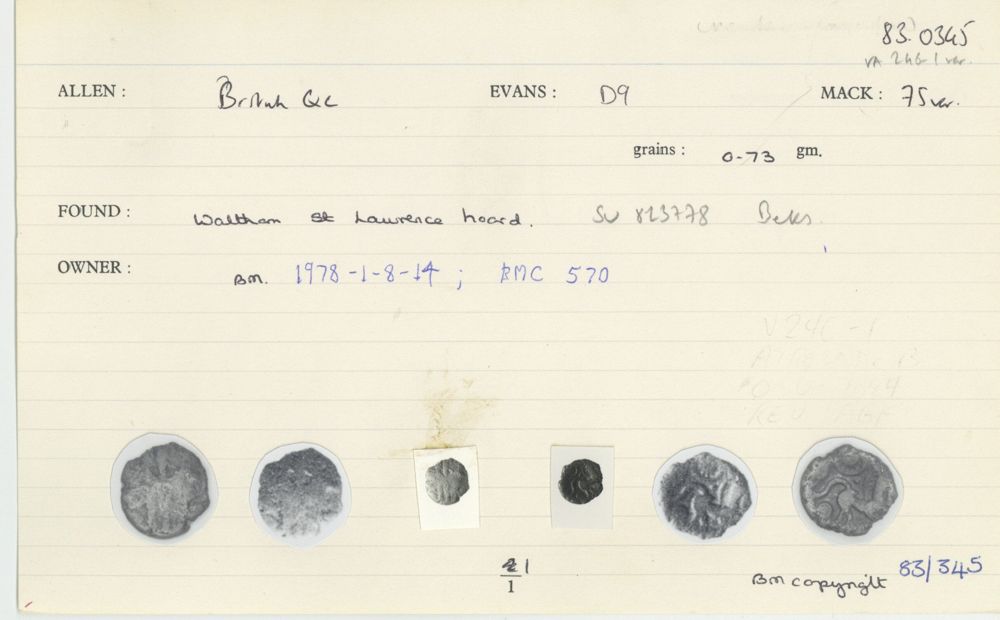 83.0345
VA 246-1 var.
ALLEN : British QC EVANS : D9 MACK : 75 var.
grains : 0-73 gm.
FOUND : Waltham St Lawrence hoard. SU 823778 Berks.
OWNER : BM. 1978-1-8-14 ; BMC 570
V 246-1
1
1
BM copyright 83/345